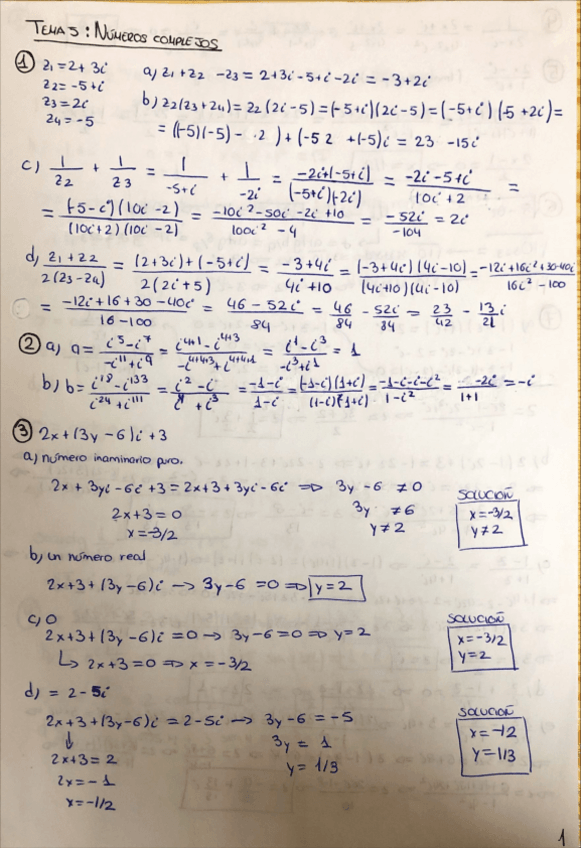 TEMA 5: NÚMEROS COMPLEJOS
① z1 = 2+3i
z2 = -5+i
z3 = 2i
z4 = -5
a) z1 + z2 - z3 = 2+3i-5+i-2i = -3+2i
b) z2(z3+z4) = z2(2i-5) = (-5+i)(2i-5) = (-5+i)(-5+2i) =
= ((-5)(-5)-1·2) + (-5·2+(-5)i = 23 -15i
c) 1/z2 + 1/z3 = 1/-5+i + 1/-2i = -2i+(-5+i)/(-5+i)(-2i) = -2i-5+i/10i+2 =
= (-5-i)(10i-2)/(10i+2)(10i-2) = -10i²-50i-2i+10/100i²-4 = -52i/-104 = 2i
d) z1+z2/2(z3-z4) = (2+3i)+(-5+i)/2(2i+5) = -3+4i/4i+10 = (-3+4i)(4i-10)/(4i+10)(4i-10) = -12i+16i²+30-40i/16i²-100
= -12i+16+30-40i/16-100 = 46-52i/84 = 46/84 - 52i/84 = 23/42 - 13/21i
② a) a = i⁵-i⁷/-i¹¹+i⁹ = i⁴⁺¹-i⁴⁺³/-i⁴⁺⁴⁺³+i⁴⁺⁴⁺¹ = i¹-i³/-i³+i¹ = 1
b) b = i¹⁸-i¹³³/i²⁴+i¹¹¹ = i²-i/i⁴+i³ = -1-i/1-i = (-1-i)(1+i)/(1-i)(1+i) = -1-i-i-i²/1-i² = -2i/1+1 = -i
③ 2x+(3y-6)i+3
a) número inaminario puro.
2x+3yi-6i+3 = 2x+3+3yi-6i ⇒ 3y-6 ≠0
2x+3=0
3y ≠6
x=-3/2
y≠2
SOLUCIÓN
x=-3/2
y≠2
b) un número real
2x+3+(3y-6)i → 3y-6=0 ⇒ y=2
c) 0
2x+3+(3y-6)i = 0 → 3y-6=0 ⇒ y=2
↳ 2x+3=0 ⇒ x=-3/2
SOLUCIÓN
x=-3/2
y=2
d) = 2-5i
2x+3+(3y-6)i = 2-5i → 3y-6 = -5
↓
3y = 1
2x+3=2
y = 1/3
2x=-1
x=-1/2
SOLUCIÓN
x=-1/2
y=1/3
1